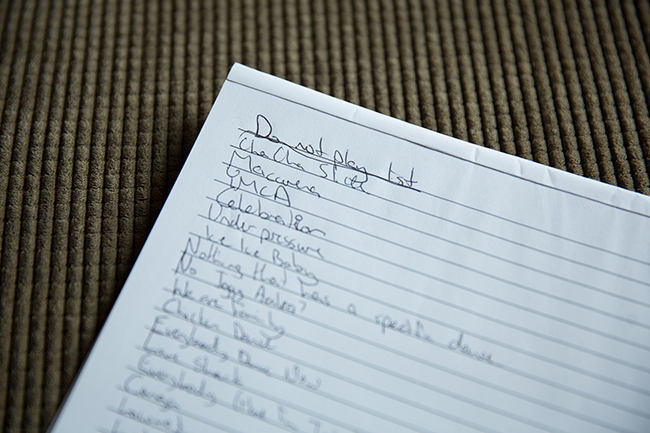 Do not play list
Cha Cha Slide
Macarena
YMCA
Celebration
Under pressure
Ice Ice Baby
Nothing that has a specific dance
No Iggy
We are family
Chicken Dance
Everybody Dance Now
Love Shack
Everybody
Conga